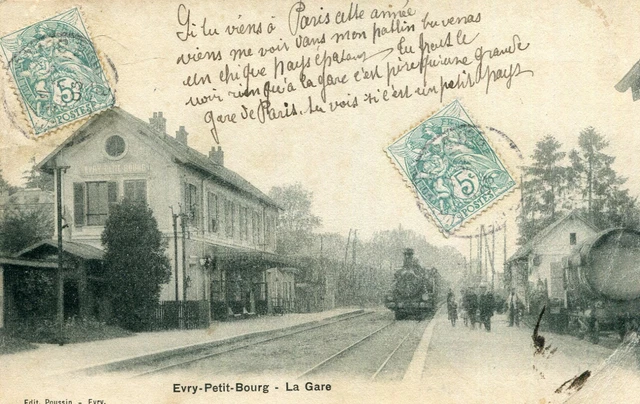 Si tu viens à Paris cette année
viens me voir dans mon patlin tu veras
un chique pays épatent Tu peut le
voir rien qu'à la gare c'est père qu'une grande
gare de Paris. tu vois si c'est un petit pays
5c
POSTES
5c
POSTES
Evry-Petit-Bourg - La Gare
Edit. Poussin - Evry.